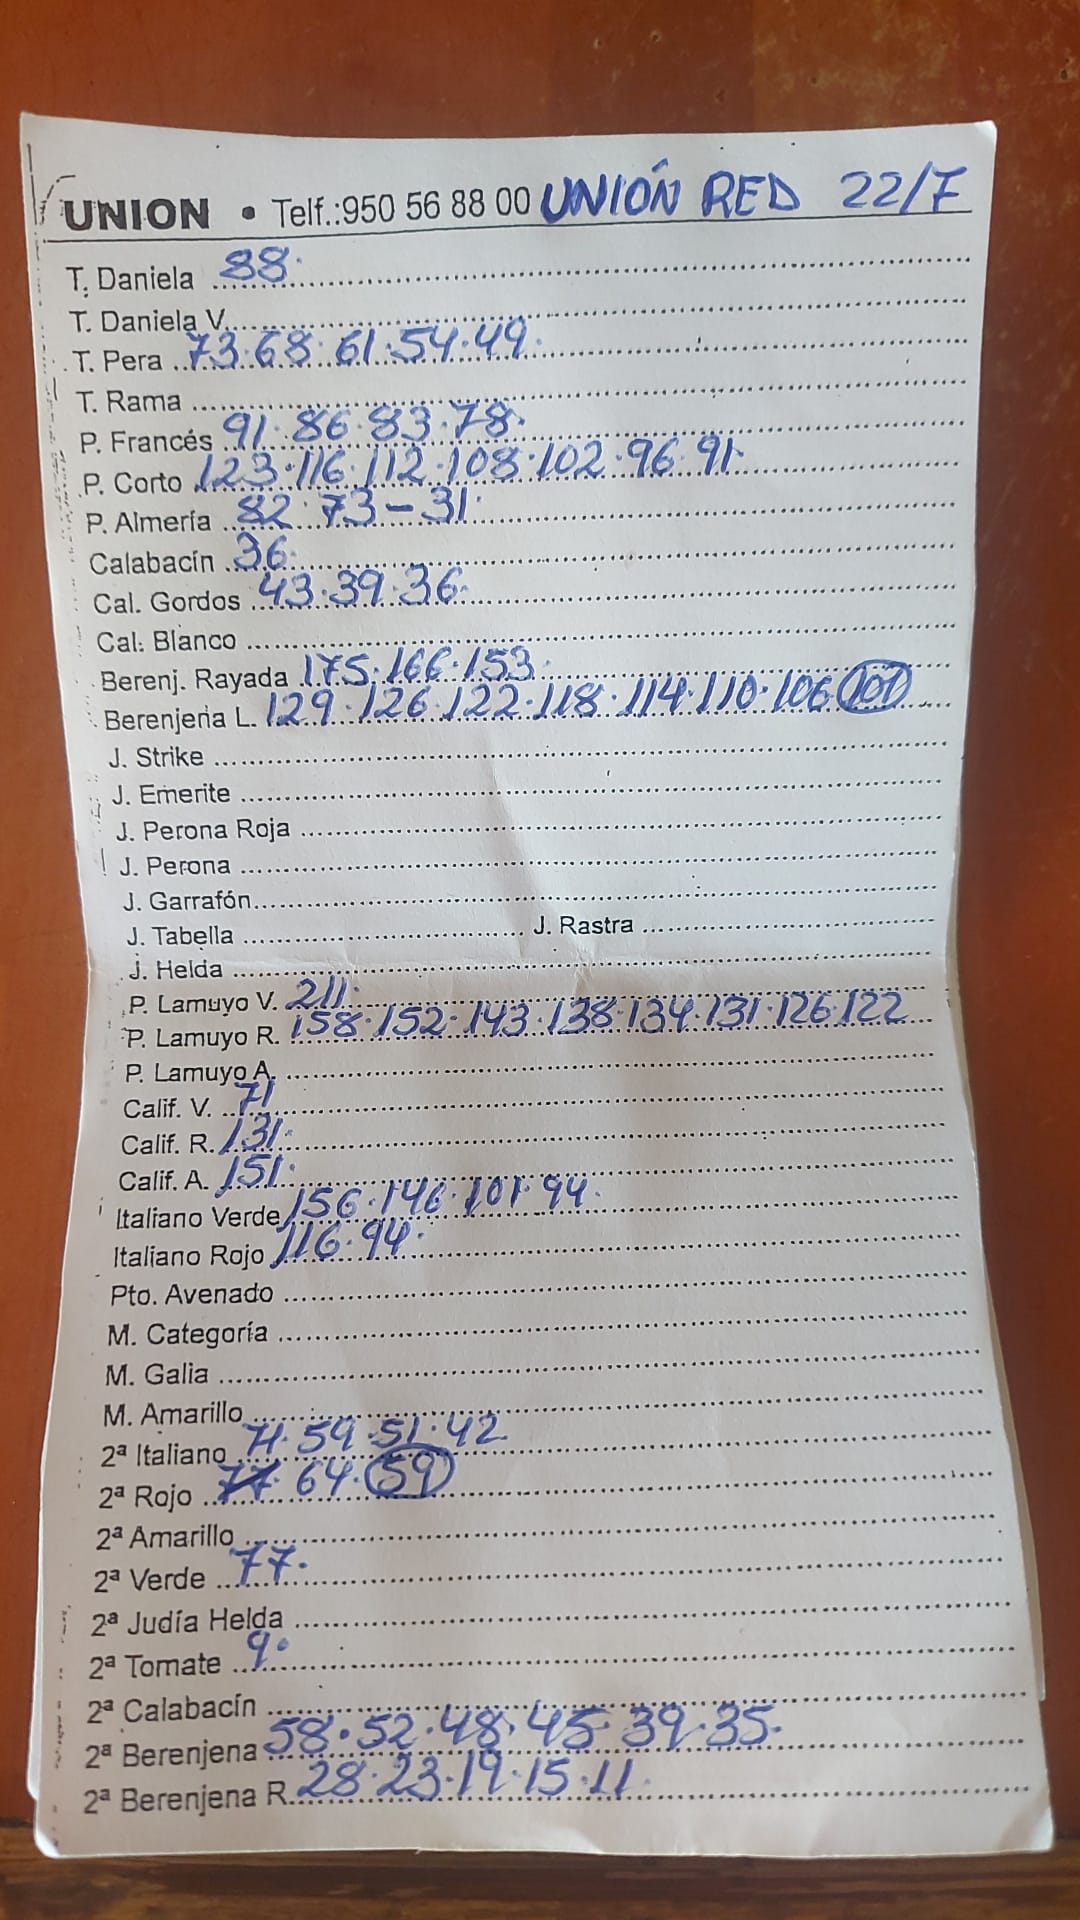 UNION • Telf.:950 56 88 00 UNIÓN RED 22/7
T. Daniela 88.
T. Daniela V.
T. Pera 73.68.61.54.49.
T. Rama
P. Francés 91.86.83.78.
P. Corto 123.116.112.108.102.96.91.
P. Almería 82.73-31.
Calabacín 36.
Cal. Gordos 43.39.36.
Cal. Blanco
Berenj. Rayada 175.166.153.
Berenjena L. 129.126.122.118.114.110.106.101
J. Strike
J. Emerite
J. Perona Roja
J. Perona
J. Garrafón
J. Tabella J. Rastra
J. Helda
P. Lamuyo V. 211.
P. Lamuyo R. 158.152.143.138.134.131.126.122
P. Lamuyo A.
Calif. V. 71
Calif. R. 131.
Calif. A. 151.
Italiano Verde 156.146.101.94.
Italiano Rojo 116.94.
Pto. Avenado
M. Categoría
M. Galia
M. Amarillo
2ª Italiano 71.59.51.42
2ª Rojo 64.59
2ª Amarillo
2ª Verde 77.
2ª Judía Helda
2ª Tomate 9.
2ª Calabacín
2ª Berenjena 58.52.48.45.39.35.
2ª Berenjena R. 28.23.19.15.11.